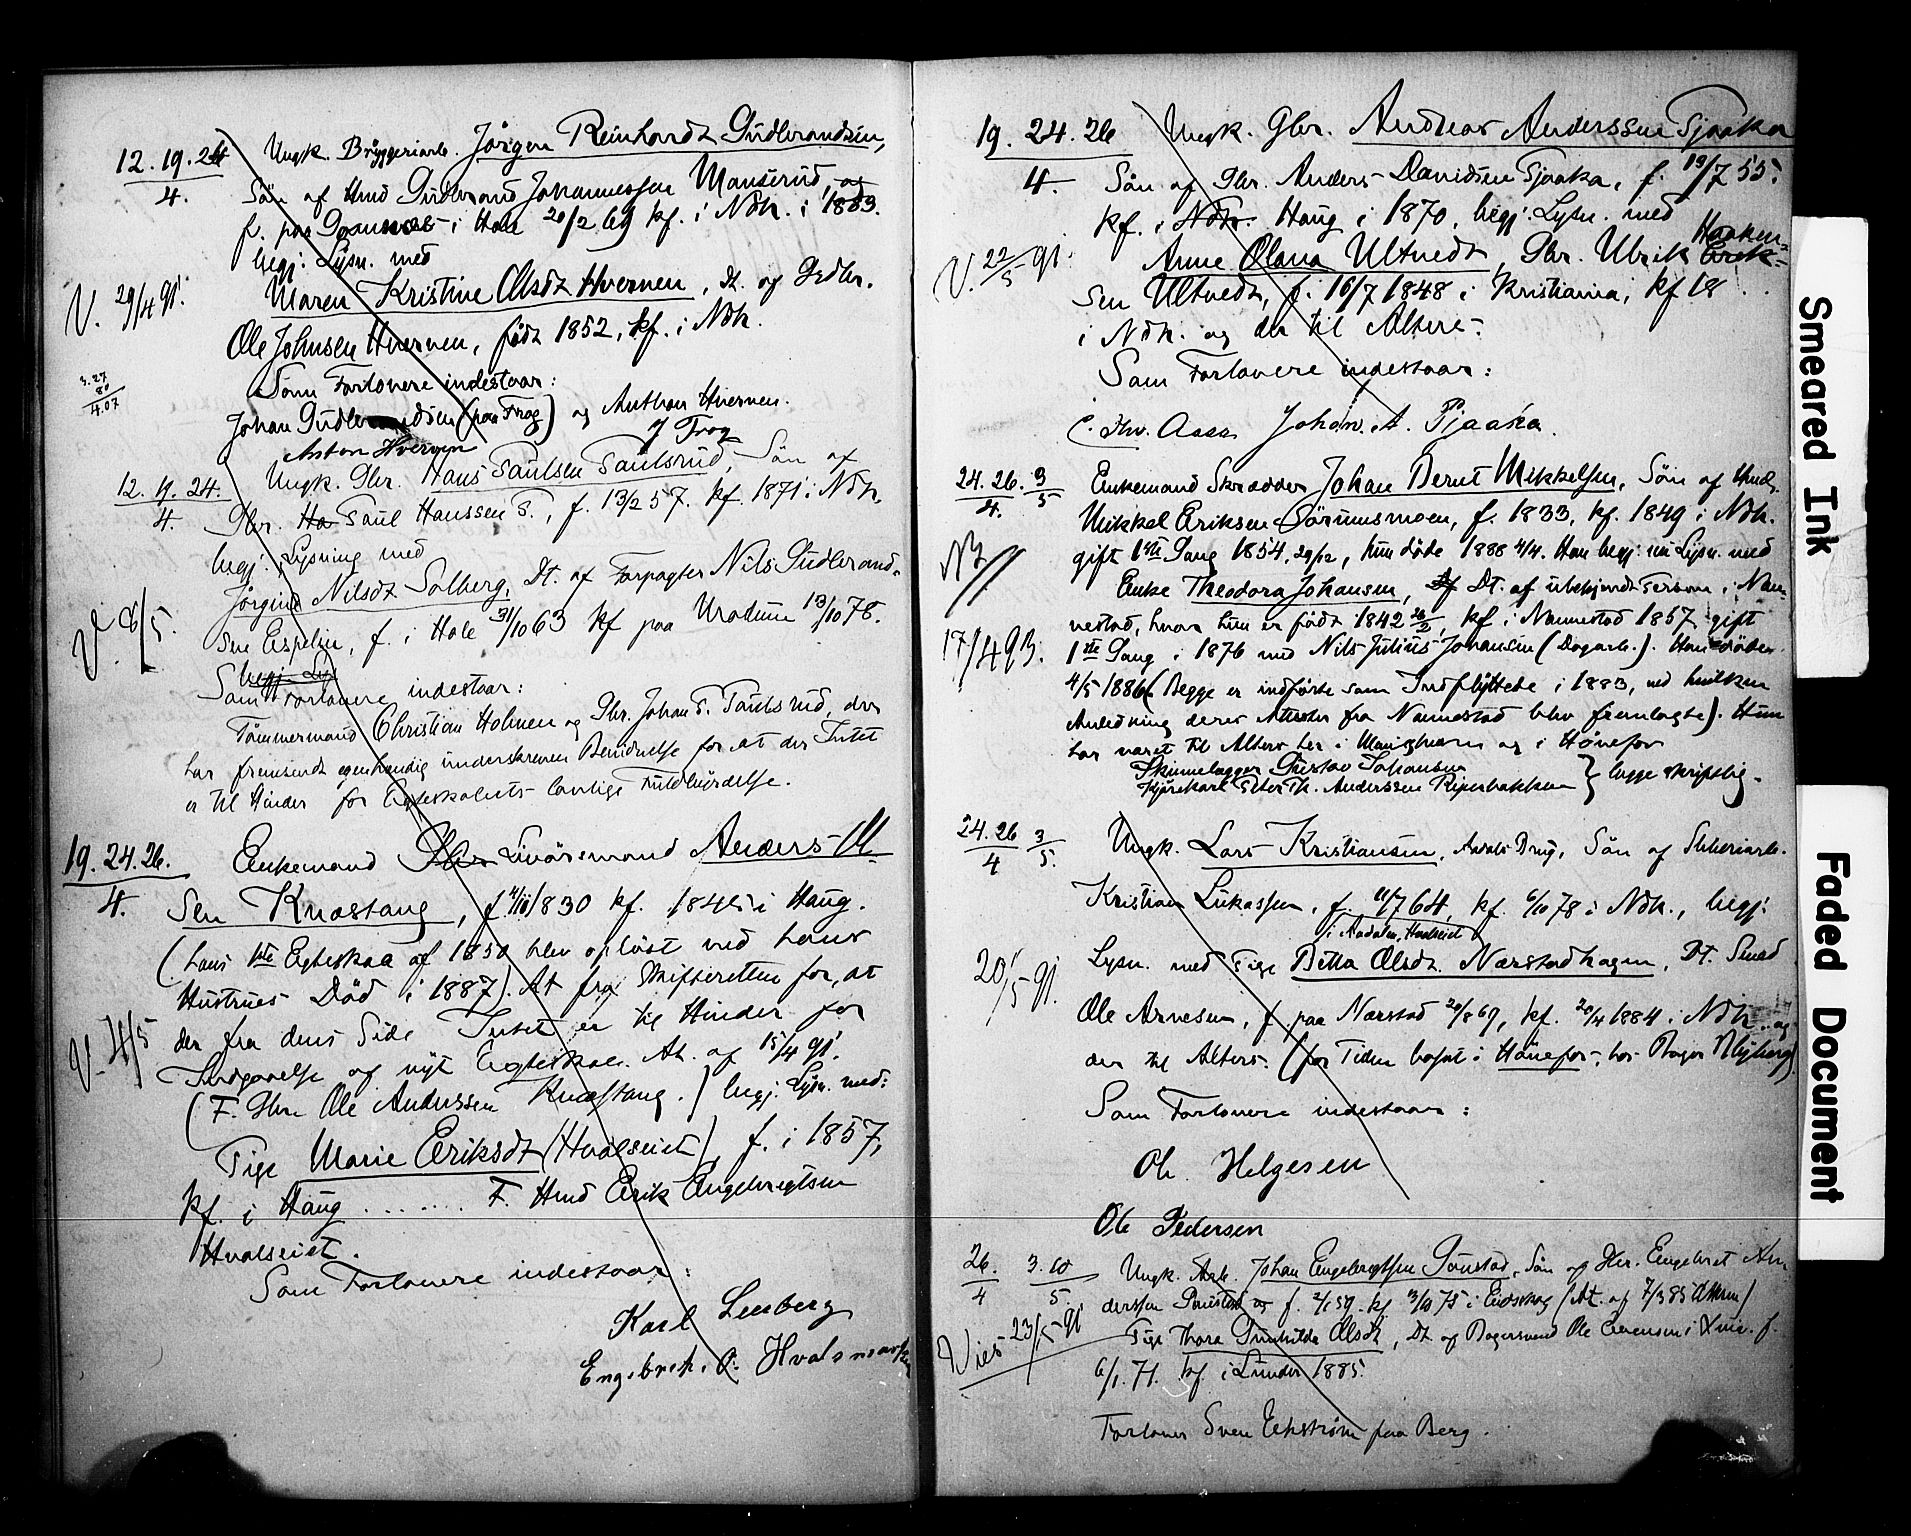 12. 19. 24
4.
Ungk. Bryggeriarb. Jörgen Reinhardt Gudbrandsen,
Sön af Hmd Gudbrand Johannessen Manserud
f. paa i Hole 20/2 69 kf. i Ndh. i 1883.
begj. Lysn. med
V. 29/4 91.
Maren Kristine Olsdt Hverven, Dt. og Gdbr.
Ole Johnsen Hverven, födt 1852, kf. i Ndh.
3.27
80
4.07
Som Forlovere indestaar:
Johan Gudbrandsen (paa Frog) og Anthon Hverven.
Anton Hverven
12. 19. 24.
4.
Ungk. Gbr. Hans Paulsen Paulsrud, Sön af
Gbr. Paul Hanssen P., f. 13/2 57. kf. 1871 i Ndh.
begj. Lysning med
Jörgine Nilsdt Solberg, Dt. af Forpagter Nils Gudbrand-
sen Espelin, f. i Hole 31/10 63 kf paa 13/10 78.
V. 8/5.
begj. Lys
Som Forlovere indestaar:
Tömmermand Christian Holmen og Gbr. Johan P. Paulsrud, der
har fremsendt egenhændig underskreven Bevidnelse for at der Intet
er til Hinder for Egteskabets lovlige Fuldbyrdelse.
19. 24. 26.
4.
Enkemand Gbr Livörsmand Anders
Sen Knestang, f. 4/10 1830 kf. 1845 i Haug.
(hans 1ste Egteskab af 1850 blev oplöst ved hans
Hustrues Död i 1887). At. fra Skifteretten for, at
der fra dens Side Intet er til Hinder for
V. 14/5
Indgaaelse af nyt Egteskab. At. af 15/4 91.
(F. Gbr. Ole Anderssen Knestang.) begj. Lysn. med:
Pige Marie Eriksdt (Hvalseiet), f. i 1857,
kf. i Haug ........ F. Hmd Erik Engebregtsen
Hvalseiet.
Som Forlovere indestaar:
Karl Lenberg
Engebret. O. Hvals
19. 24. 26
4.
Ungk. Gbr. Andreas Anderssen Tjaaka
Sön af Gbr. Anders Davidsen Tjaaka, f. 19/7 55.
kf. i Ndh. Haug i 1870, begj. Lysn. med
V. 22/5 91.
Anne Olava Ultvedt, Gbr. Ulrik Erik- Haaken-
sen Ultvedt, f. 16/7 1848 i Kristiania, kf 18 . .
i Ndh. og der til Alters.
Som Forlovere indestaar:
Johan. A. Tjaaka.
24. 26. 3
4. 5
Enkemand Skrædder Johan Bernt Mikkelsen, Sön af Hmd.
Mikkel Eriksen Sörumsmoen, f. 1833, kf. 1849 i Ndh.
gift 1ste Gang 1854, 29/12, hun döde 1888 4/4. Han begj. nu Lysn. med
NB
Enke Theodora Johansen, Dt. af ubekjendt Person i Nan-
nestad, hvor hun er födt 1842 26/2, kf i Nannestad 1857, gift
17/4 93.
1ste Gang i 1876 med Nils Julius Johansen (Dagarb.). Han döde
4/5 1886 (Begge er indförte som Indflyttede i 1883, ved hvilken
Anledning deres Attester fra Nannestad blev fremlagte). Hun
har været til Alters her i Menigheden og i Hönefos
Skinnelægger Gustav Johansen
Kjörekarl Peter Th. Anderssen Riperbakken } begge skriftlig.
24. 26 3
4 5.
Ungk. Lars Kristiansen, Aavals Brug, Sön af Sliberiarb.
Kristian Lukassen, f. 11/7 64, kf. 6/10 78 i Ndh., begj.
i Aadalen, Hvalseiet
20/5 91.
Lysn. med Pige Betta Olsdt. Nærstadhagen, Dt. Smed
Ole Arnesen, f. paa Nærstad 20/8 69, kf. 20/4 1884 i Ndh. og
der til Alters. (for Tiden bosat i Hönefos hos Bager Nyberg)
Som Forlovere indestaar:
Ole Helgesen
Ole Pedersen
26. 3. 10
4 5.
Ungk. Arb. Johan Engebregtsen Gunstad, Sön af Gbr. Engebret An-
derssen Gunstad f. 2/1 59. kf 3/10 75 i Eidskog (At. af 7/3 85 )
Vies 23/5 91
Pige Thora Gunhilda Olsdt, Dt. af Bagersvend Ole Evensen i f.
6/1. 71. kf. i Lunder 1885.
Forlover Sven Ekström paa Berg.
Smeared Ink
Faded Document